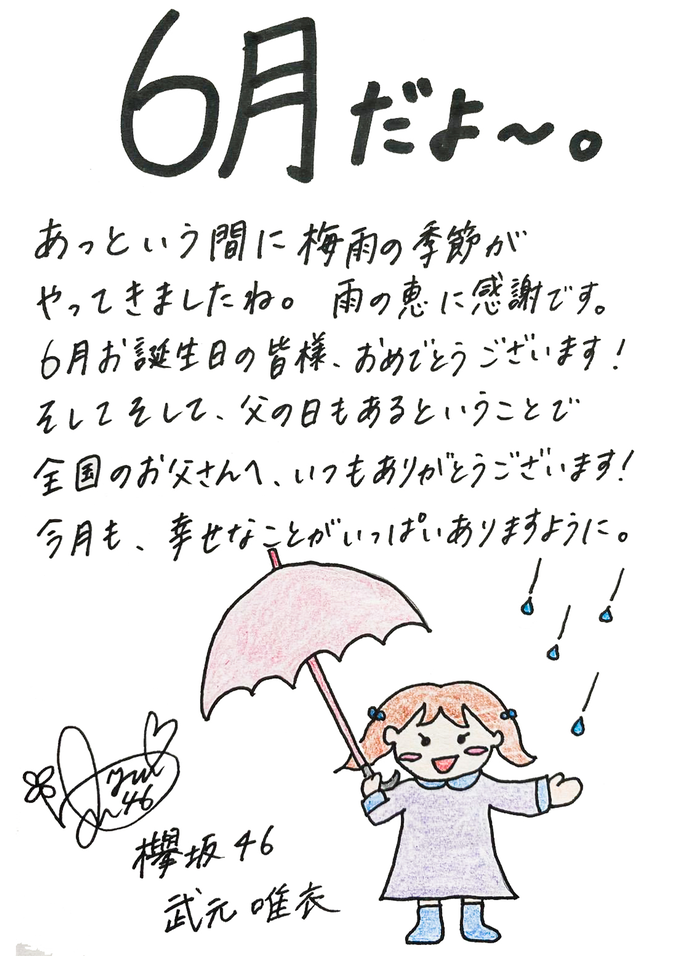 6月だよ〜。
あっという間に梅雨の季節が
やってきましたね。 雨の恵に感謝です。
6月お誕生日の皆様、おめでとうございます！
そしてそして、父の日もあるということで
全国のお父さんへ、いつもありがとうございます！
今月も、幸せなことがいっぱいありますように。
Yui
46
欅坂46
武元唯衣